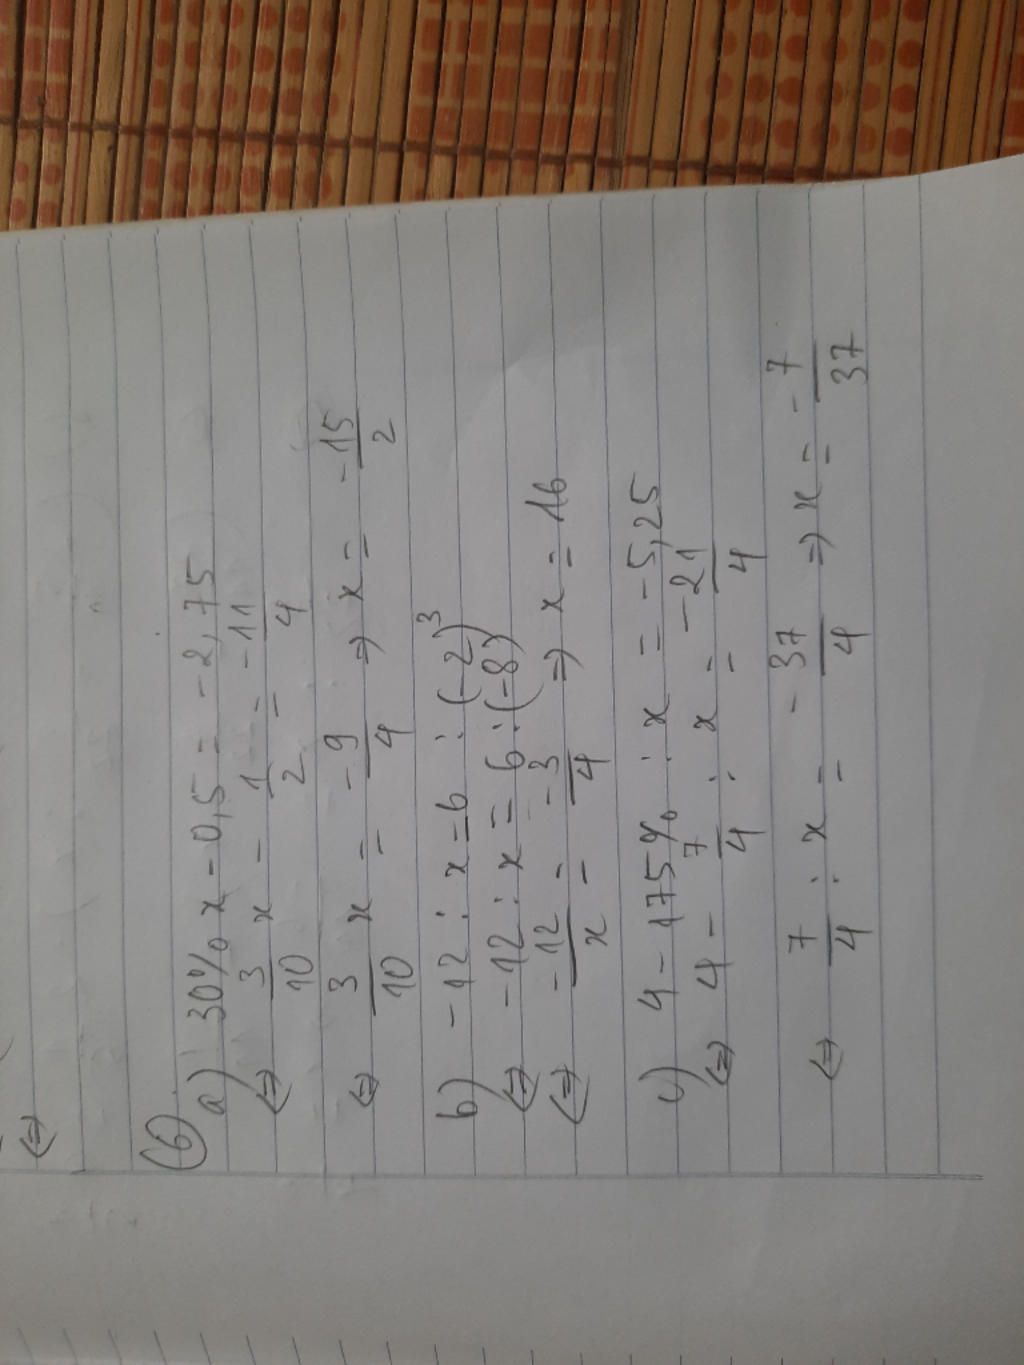 ⇔
6
a) 30% x - 0,5 = -2,75
⇔ 3/10 x - 1/2 = -11/4
⇔ 3/10 x = -9/4 ⇒ x = -15/2
b) -12 : x = 6 : (-2)³
⇔ -12 : x = 6 : (-8)
⇔ -12/x = -3/4 ⇒ x = 16
c) 4 - 175% : x = -5,25
⇔ 4 - 7/4 : x = -21/4
⇔ 7/4 : x = -37/4 ⇒ x = -7/37